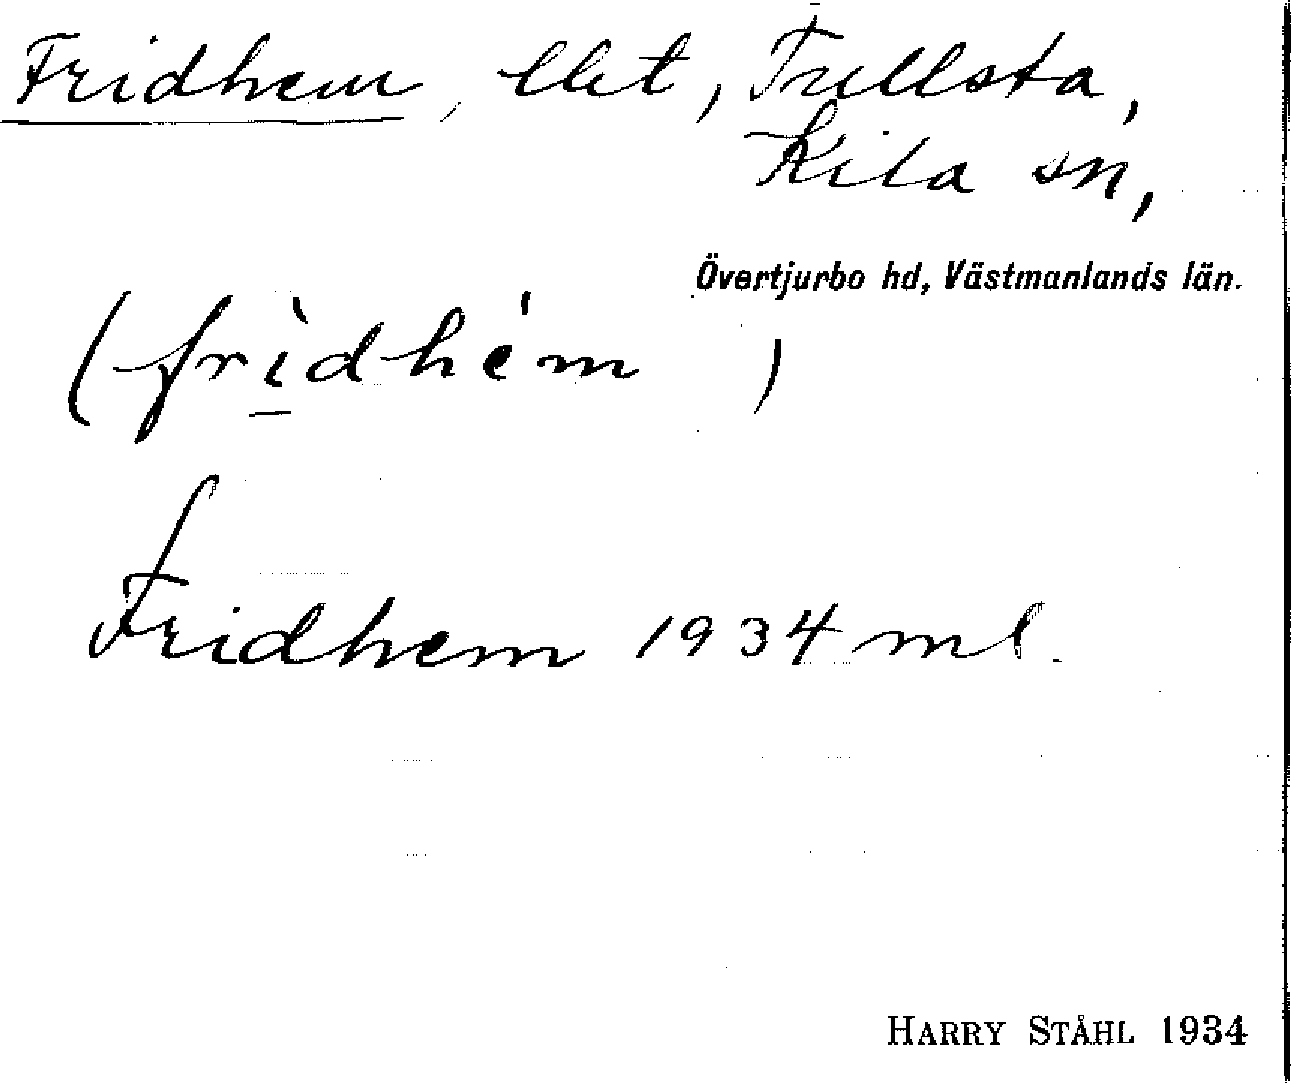 Fridhem, llt, Trellsta,
Kila sn,
Övertjurbo hd, Västmanlands län.
(frìdhém )
Fridhem 1934 ml.
HARRY STÅHL 1934